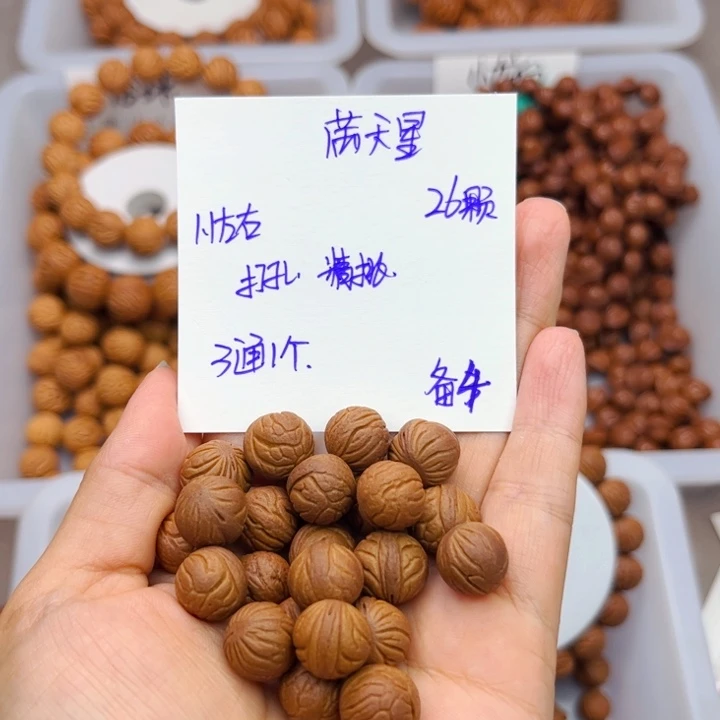 满天星
26颗
11左右
打孔 精抛
3通1个.